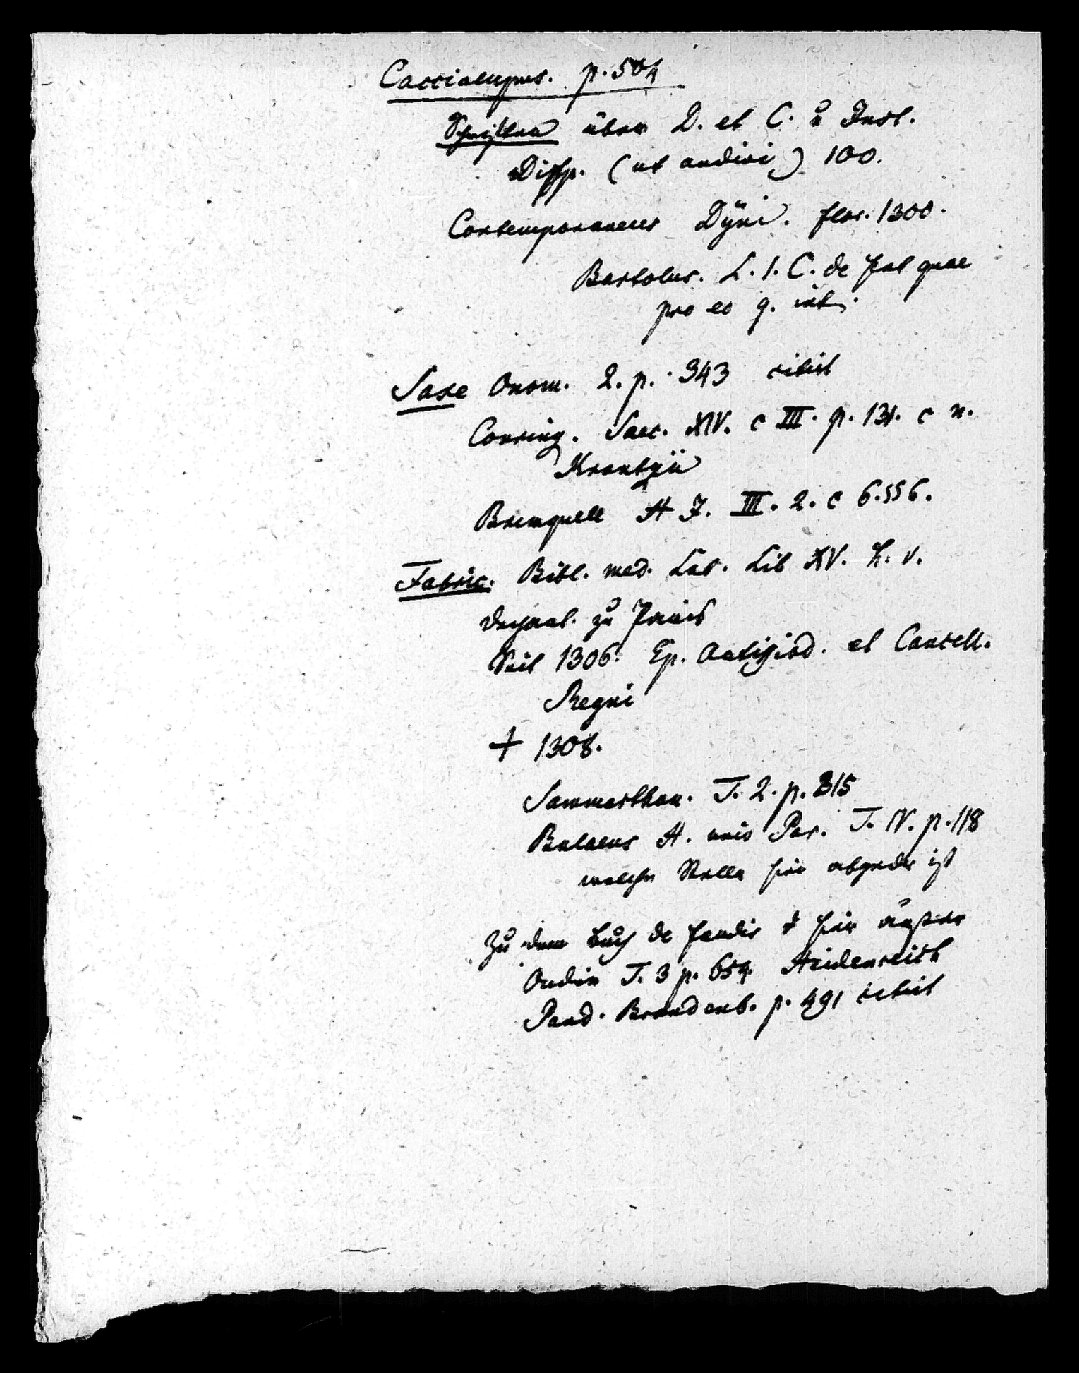 Caccialupus. p. 504
Schriften über D. et C. u Inst.
Dissp. (ut audivi) 100.
Contemporaneus Dÿni. flor. 1300.
Bartolus. L. 1. C. de fal quae
pro eo q. int.
Saxe Onom. 2. p. 343 citirt
Conring. Saec. XIV. c III. p. 131. c n.
Krantzii
Brunquell H J. III. 2. c 6. §§ 6.
Fabric. Bibl. med. Lat. Lib XV. h. v.
Dechant. zu Paris
Seit 1306. Ep. Antisiod. et Cancell.
Regni
† 1308.
Sammarthan. T. 2. p. 315
Bulaeus H. univ Par. T. IV. p. 118
welche Stelle hier abgedr ist
Zu dem Buch de feudis hier
Oudin T. 3 p. 654. Heidenreich
Pand. Brandenb. p. 491 citirt